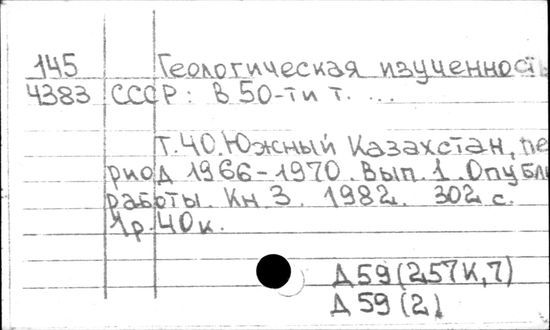 145 Геологическая изученность
4383 СССР: В 50-ти т. ...
т. 40. Южный Казахстан, пе
риод 1966-1970. Вып. 1. Опубли
работы. Кн. 3. 1982. 302 с.
1р. 40к.
Д59(257К,7)
Д59(2)